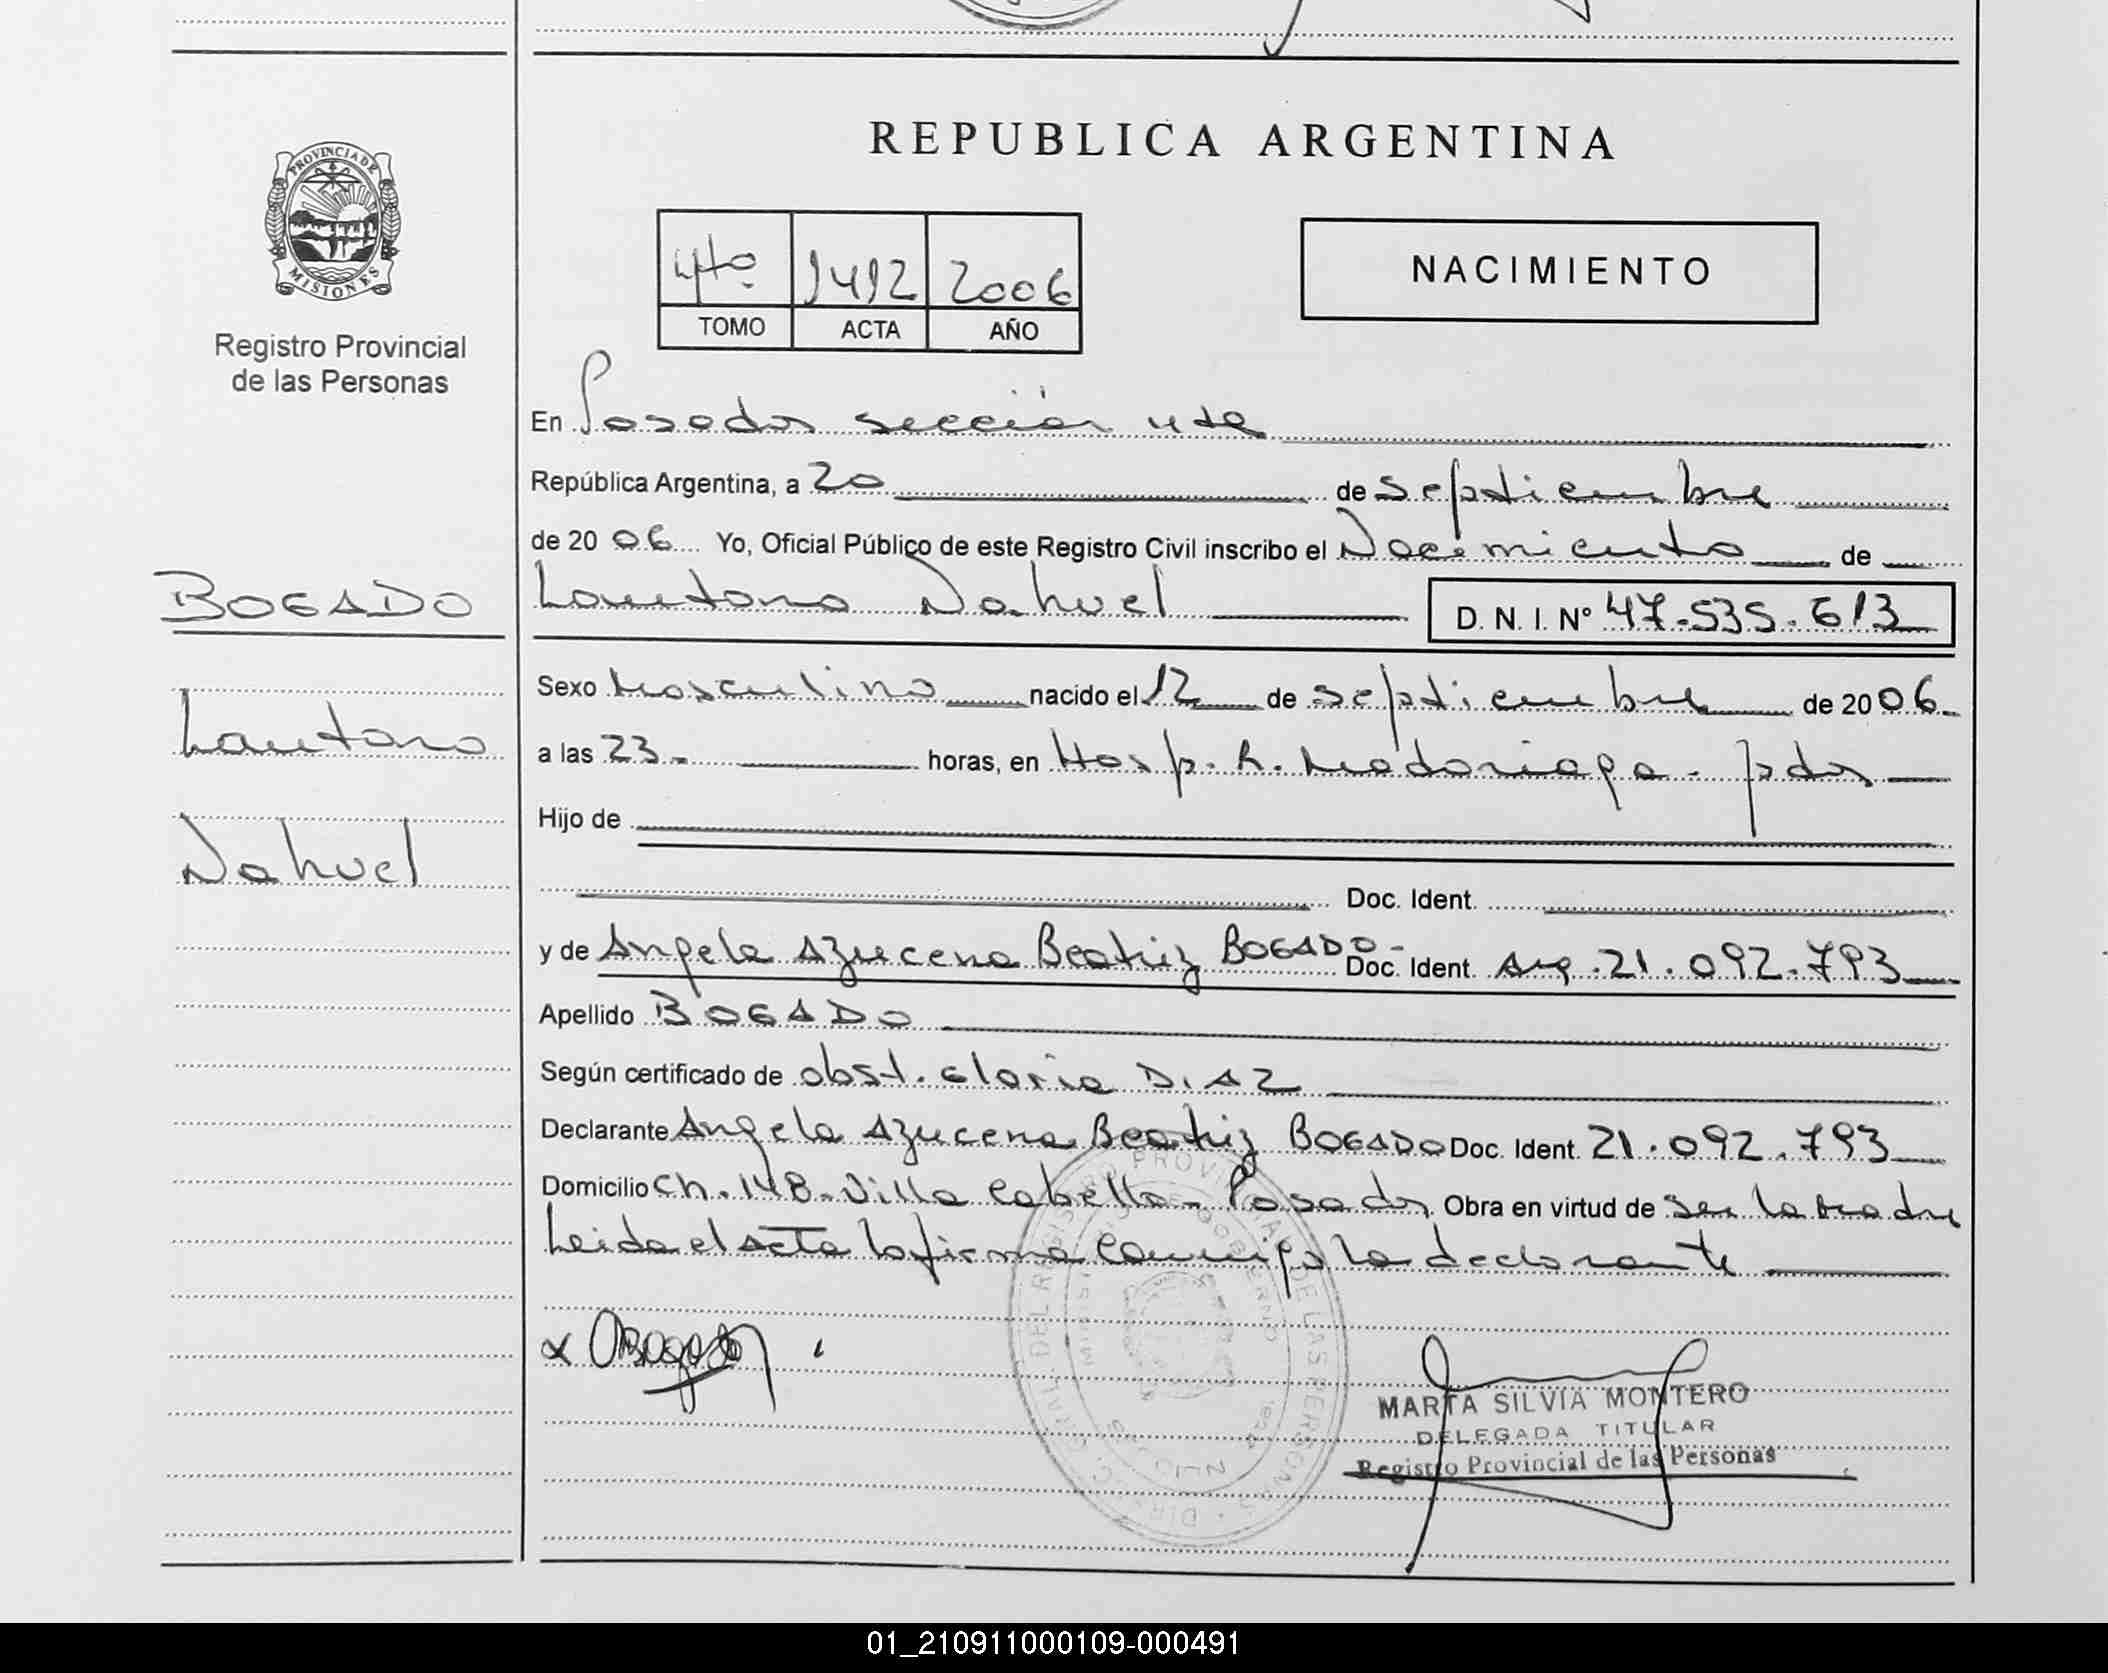 REPUBLICA ARGENTINA
PROVINCIA DE
MISIONES
Registro Provincial
de las Personas
4to. 1492 2006
TOMO ACTA AÑO
NACIMIENTO
En Posadas sección 4ta
República Argentina, a 20 de septiembre
de 2006 Yo, Oficial Público de este Registro Civil inscribo el Nacimiento de
BOGADO
Lautaro Nahuel D. N. I. Nº 47.535.613
Sexo Masculino nacido el 12 de septiembre de 2006
Lautaro
a las 23.- horas, en Hosp. R. Madariaga - pdas
Hijo de
Nahuel
Doc. Ident.
y de Angela Azucena Beatriz BOGADO - Doc. Ident. Arg. 21.092.793
Apellido BOGADO
Según certificado de obst. Gloria DIAZ
Declarante Angela Azucena Beatriz BOGADO Doc. Ident. 21.092.793
Domicilio Ch. 148 - Villa Cabello - Posadas Obra en virtud de ser la madre
Leida el acta la firma conmigo la declarante
MARTA SILVIA MONTERO
DELEGADA TITULAR
Registro Provincial de las Personas
01_210911000109-000491